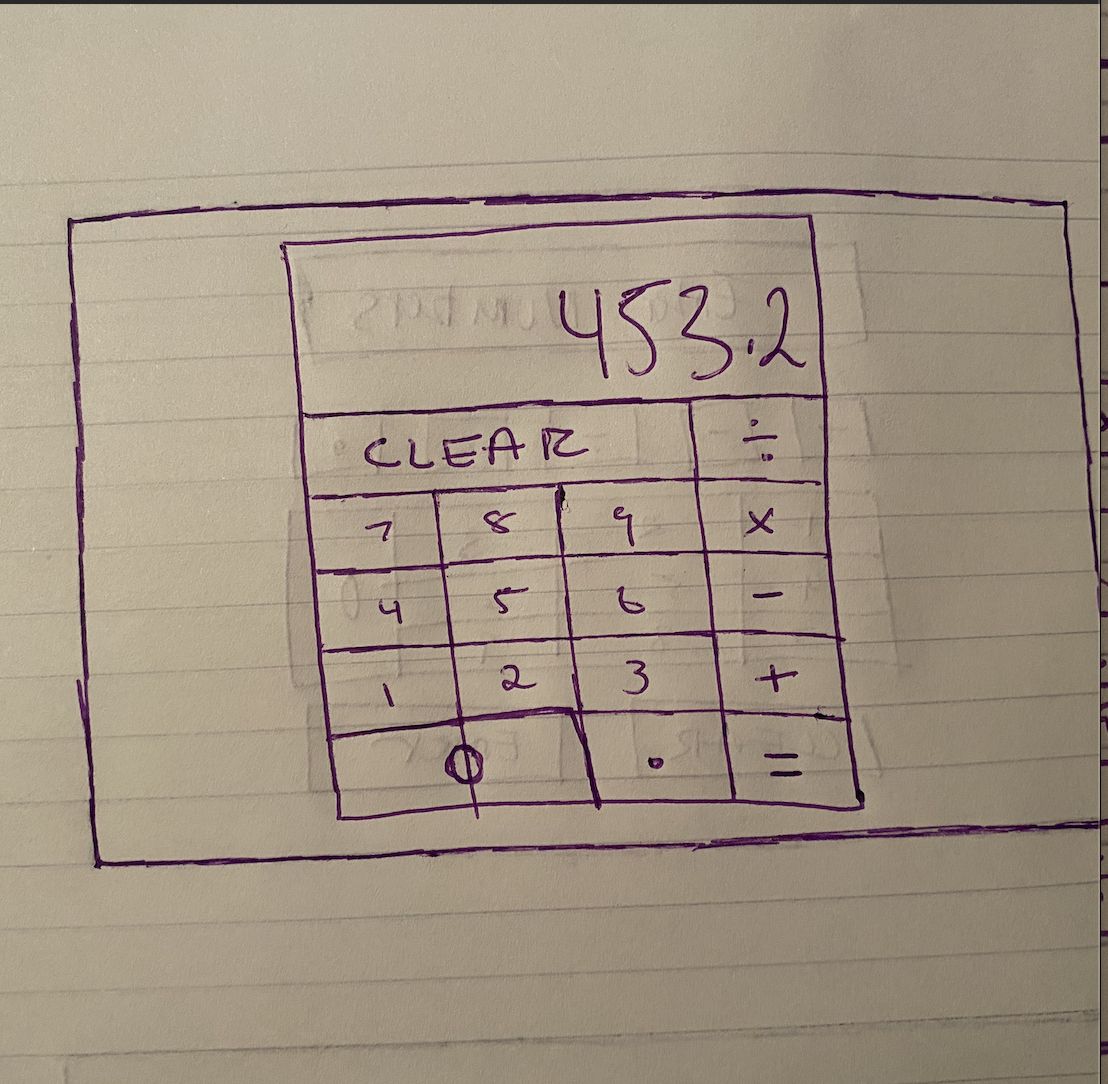 453.2
CLEAR ÷
7 8 9 x
4 5 6 -
1 2 3 +
0 . =